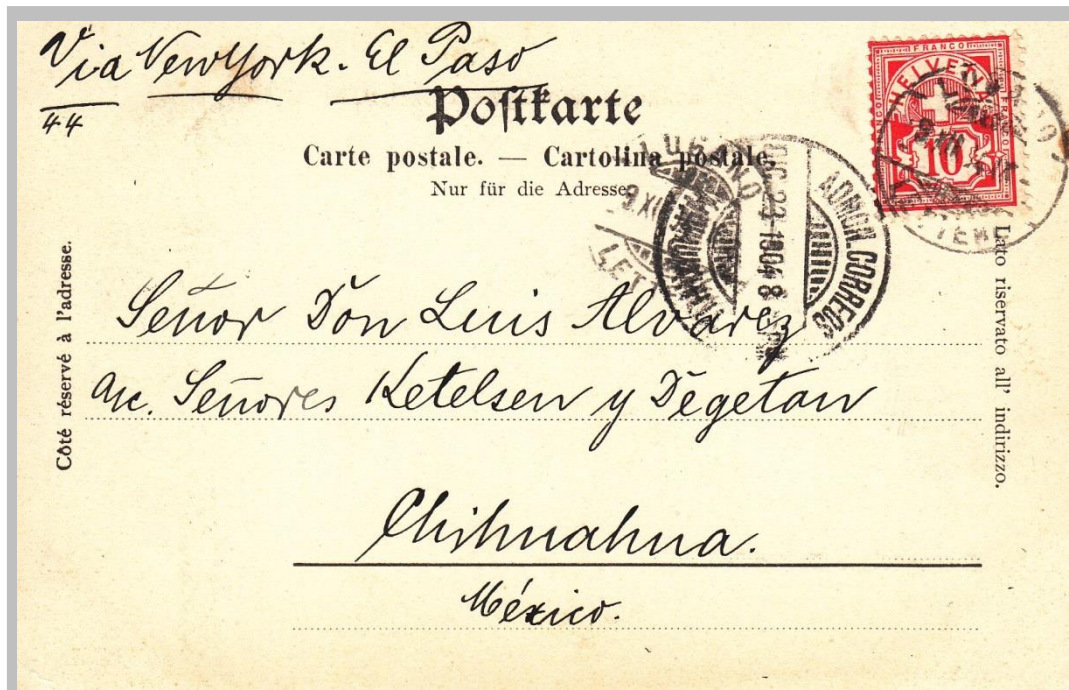 Via New York. El Paso
44
Postkarte
Carte postale. — Cartolina postale.
Nur für die Adresse.
FRANCO
HELVETIA
10
LUGANO
9 XII
LETT
DIC 23 1904 8
ADMON. CORREOS
CHIHUAHUA
Côté réservé à l'adresse.
Lato riservato all' indirizzo.
Señor Don Luis Alvarez
Señores Ketelsen y Degetau
Chihuahua.
México.